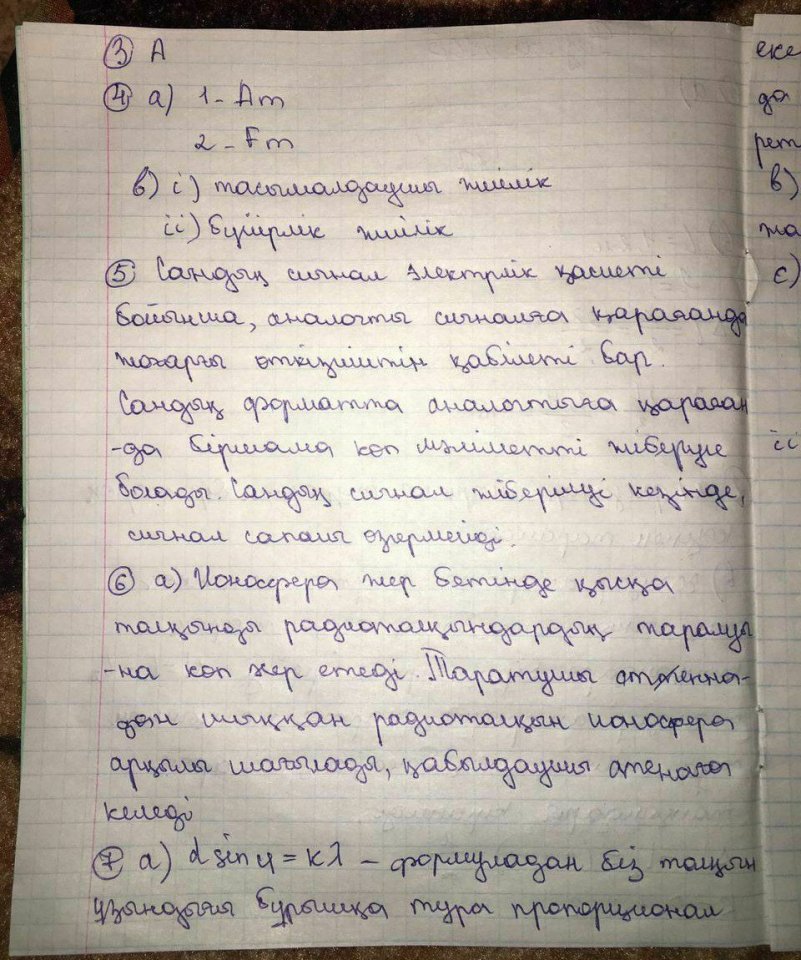 ③ А
④ а) 1 - Am
2 - Fm
в) i) тасымалдаушы жиілік
ii) бүйірлік жиілік
⑤ Сандық сигнал электрлік қасиеті
бойынша, аналогты сигналға қарағанда
жоғарғы өткізгіштік қабілеті бар.
Сандық форматта аналогтыға қараған
-да біршама көп мәліметті жіберуге
болады. Сандық сигнал жіберілуі кезінде,
сигнал сапасы өзгермейді.
⑥ а) Ионосфера жер бетінде қысқа
толқынды радиотолқындардың таралуы
-на көп әсер етеді. Таратушы антенна-
дан шыққан радиотолқын ионосфера
арқылы шағылады, қабылдаушы атенаға
келеді
⑦ а) d sin φ = kλ - формуладан біз толқын
ұзындығы бұрышқа тура пропорционал
еке
да
рет
в)
жа
с)
ii